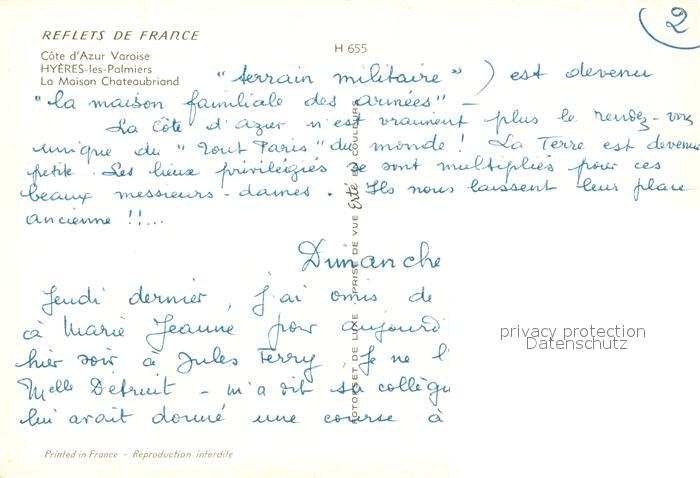 REFLETS DE FRANCE
Côte d'Azur Varoise
HYÈRES-les-Palmiers
La Maison Chateaubriand
H 655
2
"terrain militaire") est devenu
"la maison familiale des armées" –
La Côte d'Azur n'est vraiment plus le rendez-vous
unique du "Tout Paris" du monde ! La Terre est devenue
petite. Les lieux privilégiés se sont multipliés pour ces
beaux messieurs-dames. Ils nous laissent leur place
ancienne !!...
Dimanche
Jeudi dernier, j'ai omis de
à Marie Jeanne pour aujourd
hier soir à Jules Ferry. Je ne l'
Melle Détruit – m'a dit sa collègu
lui avait donné une course à
PHOTO OFFSET DE LUXE - PRISE DE VUE Erté EN COULEURS
privacy protection
Datenschutz
Printed in France - Reproduction interdite